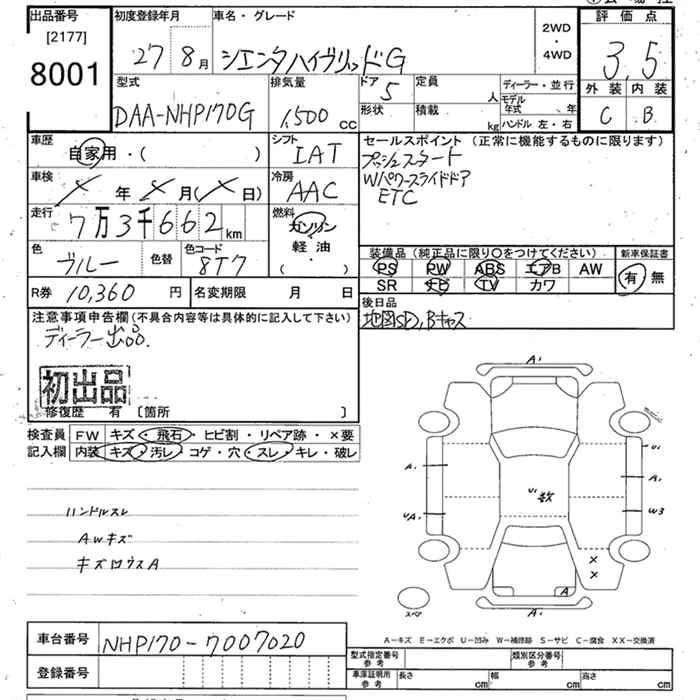 出品番号
[2177]
8001
初度登録年月
27 8月
車名・グレード
シエンタハイブリッドG
2WD
・
4WD
評価点
3.5
外装 内装
C B
型式
DAA-NHP170G
排気量
1,500 cc
ドア
5
定員
人
形状
積載
kg
ディーラー・並行
モデル年式 年
ハンドル 左・右
車歴
自家用・( )
シフト
IAT
セールスポイント (正常に機能するものに限ります)
プッシュスタート
Wパワースライドドア
ETC
車検
年 月( 日)
冷房
AAC
走行
7万3千662km
燃料
ガソリン
・
軽油
( )
色
ブルー
色替
色コード
8T7
装備品(純正品に限り○をつけてください)
PS PW ABS エアB AW
SR ナビ TV カワ
新車保証書
有 無
R券 10,360円
名変期限 月 日
後日品
地図SD,Bキャス
注意事項申告欄(不具合内容等は具体的に記入して下さい)
ディーラー出品.
初出品
修復歴 有 [箇所 ]
検査員
記入欄
FW キズ・飛石・ヒビ割・リペア跡・×要
内装 キズ・汚レ・コゲ・穴・スレ・キレ・破レ
ハンドルスレ
AWキズ
キズロウスA
A1
A1
UA1
U1
数
U1
A1
W3
×
×
A
A1
スペア
A-キズ E-エクボ U-凹み W-補修跡 S-サビ C-腐食 XX-交換済
車台番号 NHP170-7007020
登録番号
型式指定番号
参考
類別区分番号
参考
車庫証明用
参考
長さ cm
幅 cm
高さ cm